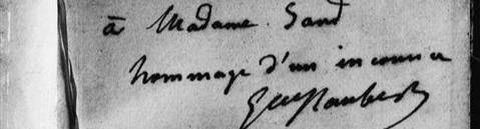 à Madame Sand
hommage d'un inconnu
Gve Flaubert